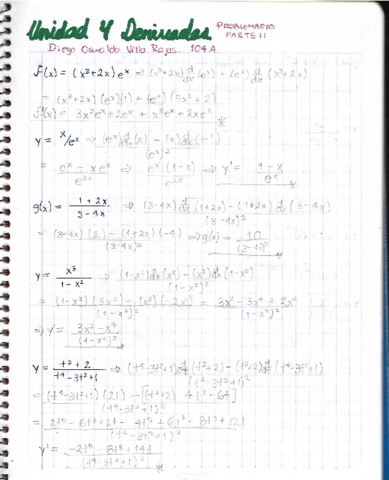 Unidad 4 Derivadas PROBLEMARIO PARTE II
Diego Oswaldo Villa Rojas. 104A.
f(x) = (x³+2x) eˣ ⇒ (x³+2x) d/dx (eˣ) + (eˣ) d/dx (x³+2x)
= (x³+2x)(eˣ)(1) + (eˣ)(3x²+2)
f'(x) = 3x²eˣ + 2eˣ + x³eˣ + 2xeˣ
y = x/eˣ ⇒ (eˣ) d/dx (x) - (x) d/dx (eˣ) / (eˣ)²
= eˣ - xeˣ / e²ˣ ⇒ eˣ (1-x) / e²ˣ ⇒ y' = 1-x / eˣ
g(x) = 1+2x / 3-4x ⇒ (3-4x) d/dx (1+2x) - (1+2x) d/dx (3-4x) / (3-4x)²
= (3-4x)(2) - (1+2x)(-4) / (3-4x)² ⇒ g(x) = 10 / (3-4x)²
y = x³ / 1-x² ⇒ (1-x²) d/dx (x³) - (x³) d/dx (1-x²) / (1-x²)²
= (1-x²)(3x²) - (x³)(-2x) / (1-x²)² = 3x² - 3x⁴ + 2x⁴ / (1-x²)²
⇒ y' = 3x² - x⁴ / (1-x²)²
y = t²+2 / t⁴-3t²+1 ⇒ (t⁴-3t²+1) d/dt (t²+2) - (t²+2) d/dt (t⁴-3t²+1) / (t⁴-3t²+1)²
= (t⁴-3t²+1)(2t) - [(t²+2) 4t³-6t] / (t⁴-3t²+1)²
/ (t⁴-3t²+1)²
y' = / (t⁴-3t²+1)²